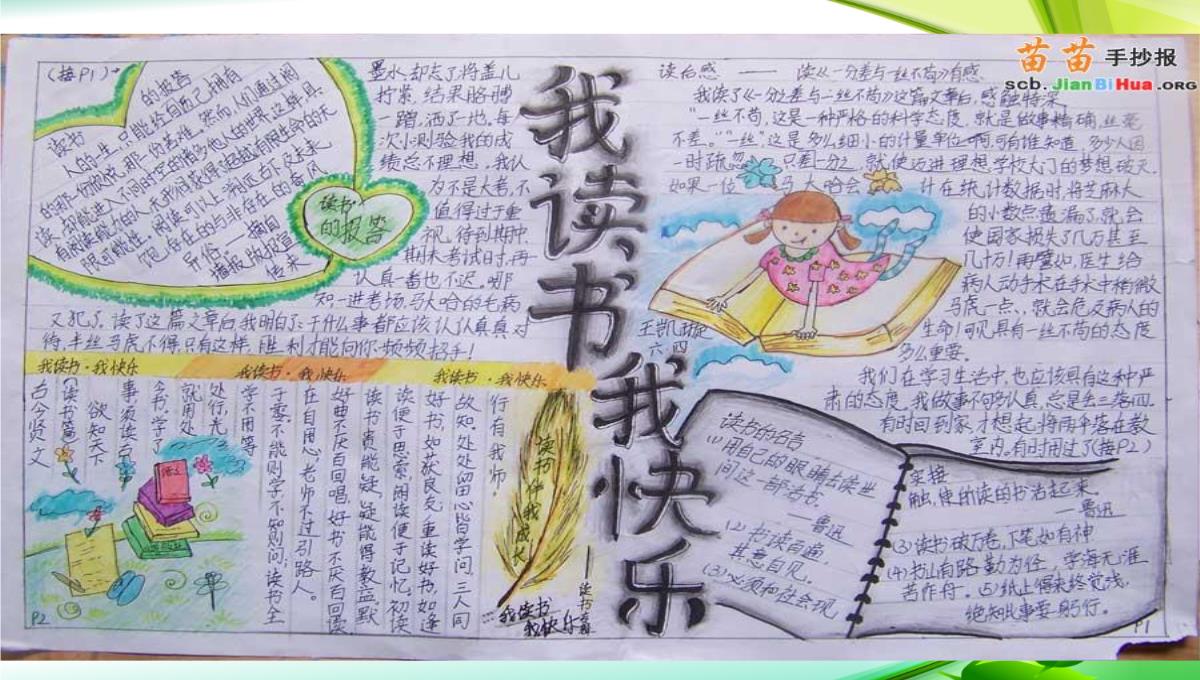 苗苗手抄报
scb.JianBiHua.ORG
我读书
我快乐
读后感 —— 读《一分之差与一丝不苟》有感
我读了《一分之差与一丝不苟》这篇文章后，感触特深。
"一丝不苟，这是一种严格的科学态度，就是做事精确，丝毫
不差。""一丝"，这是多么细小的计量单位啊，可有谁知道，多少人因
一时疏忽 只差一分之 就使迈进理想学校大门的梦想破灭。
如果一位 马大哈会 计在统计数据时，将芝麻大
的小数点遗漏了，就会
使国家损失了几万甚至
几十万！再譬如，医生给
病人动手术在手术中稍微
马虎一点、就会危及病人的
生命！可见具有一丝不苟的态度
多么重要。
王凯璇
六·四
我们在学习生活中，也应该具有这种严
肃的态度。我做事不够认真，总是丢三落四。
有时回到家才想起，将
室内。有时用过了（接P2）
读书的名言
(1)用自己的眼睛去读世
间这一部活书。
——鲁迅
(2)书读百遍，
其意自见。
(3)必须和社会现
实接
触，使所读的书活起来。
——鲁迅
(3)读书破万卷，下笔如有神
(4)书山有路勤为径，学海无涯
苦作舟。(5)纸上得来终觉浅，
绝知此事要躬行。
P1
（接P1）→
墨水，却忘了将盖儿
拧紧，结果胳膊
一蹭，洒了一地。每
次小测验我的成
绩总不理想，我认
为不是大考，不
值得过于重
视，待到期中、
期末考试时，再
认真一番也不迟。哪
知一进考场，马大哈的毛病
又犯了。读了这篇文章后我明白了：干什么事都应该认认真真对
待，半丝马虎不得，只有这样，胜利才能向你频频招手！
读书的报告
的报告
读书
人的一生，只能给自己拥有
的那一份欣悦，那一份苦难。然而，人们通过阅
读，却能进入不同时空的诸多他人的世界。这样，具
有阅读能力的人，无形间获得了超越有限生命的无
限可能性。阅读可以上溯远古下及未来，
饱 存在的与非存在的奇风
异俗。——摘自
传来
我读书·我快乐
我读书·我快乐
我读书·我快乐
行有我师。
故知。处处留心皆学问，三人同
好书，如获良友；重读好书，如逢
读便于思索，朗读便于记忆。初读
读书贵能疑，疑能得教益。默
好曲不厌百回唱，好书不厌百回读
在自用心。老师不过引路人。
于零。不能则学，不知则问；读书全
学不用等
处行，光
就用处
书，学了
事须读古
欲知天下
《读书篇》
古今贤文
读书伴我成长
——读书
我读书
我快乐
P2